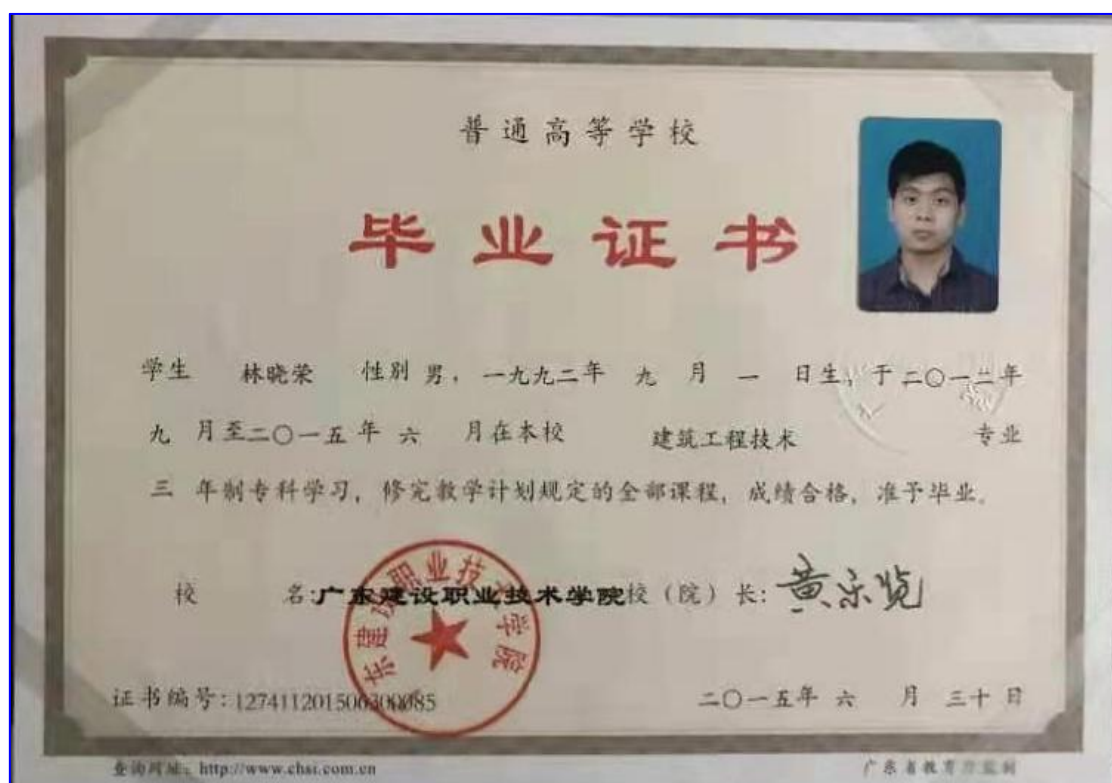 普通高等学校
毕业证书
学生 林晓荣 性别 男，一九九二年 九 月 一 日生，于二〇一二年
九 月至二〇一五年 六 月在本校 建筑工程技术 专业
三 年制专科学习，修完教学计划规定的全部课程，成绩合格，准予毕业。
校 名:广东建设职业技术学院校（院）长:
东建设职业技术学院
证书编号:127411201506300085 二〇一五年 六 月 三十 日
查询网址: http://www.chsi.com.cn 广东省教育厅监制